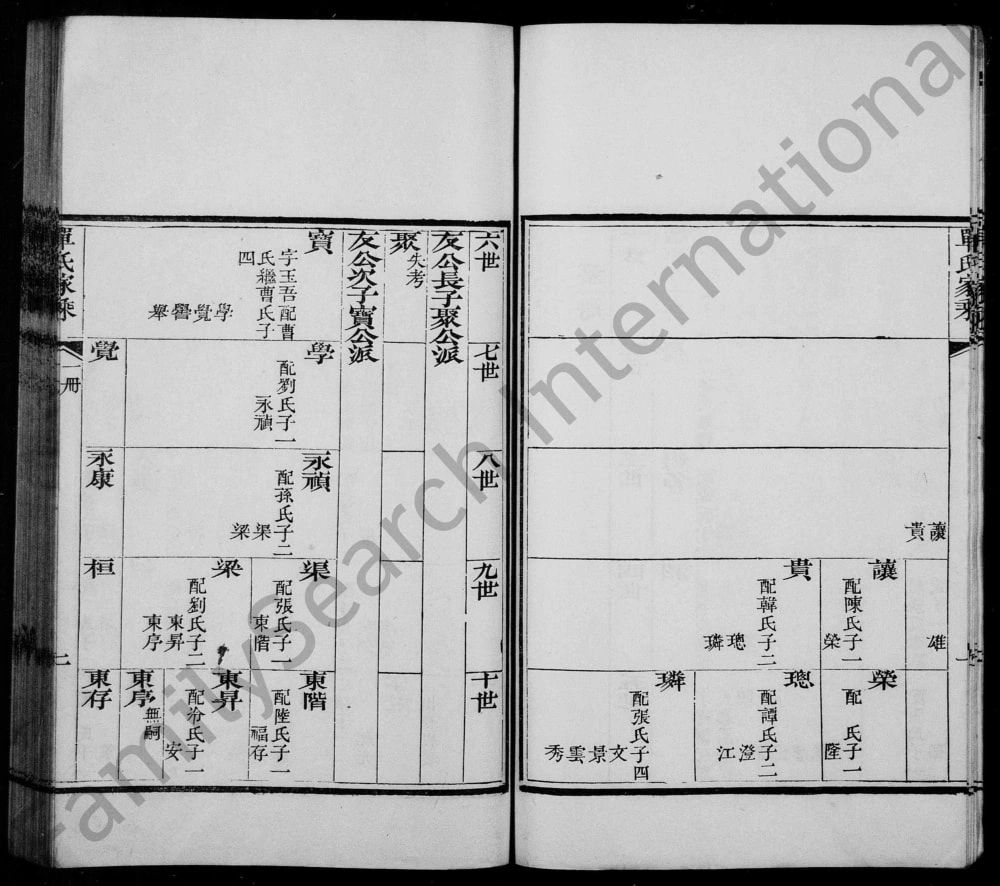 單氏家乘
讓
貴
雄
讓
配陳氏子一
榮
貴
配韓氏子二
璁
璘
榮
配 氏子一
隆
璁
配譚氏子二
澄
江
璘
配張氏子四
文
景
雲
秀
六世
七世
八世
九世
十世
友公長子聚公派
聚
失考
友公次子寶公派
寶
字玉吾配曹
氏繼曹氏子
四
學
覺
譽
舉
學
配劉氏子一
永禎
覺
永禎
配孫氏子二
渠
梁
永康
渠
配張氏子一
東階
梁
配劉氏子二
東昇
東序
桓
東階
配陸氏子一
福存
東昇
配冷氏子一
安
東序
無嗣
東存
單氏家乘
一冊
二
FamilySearch International